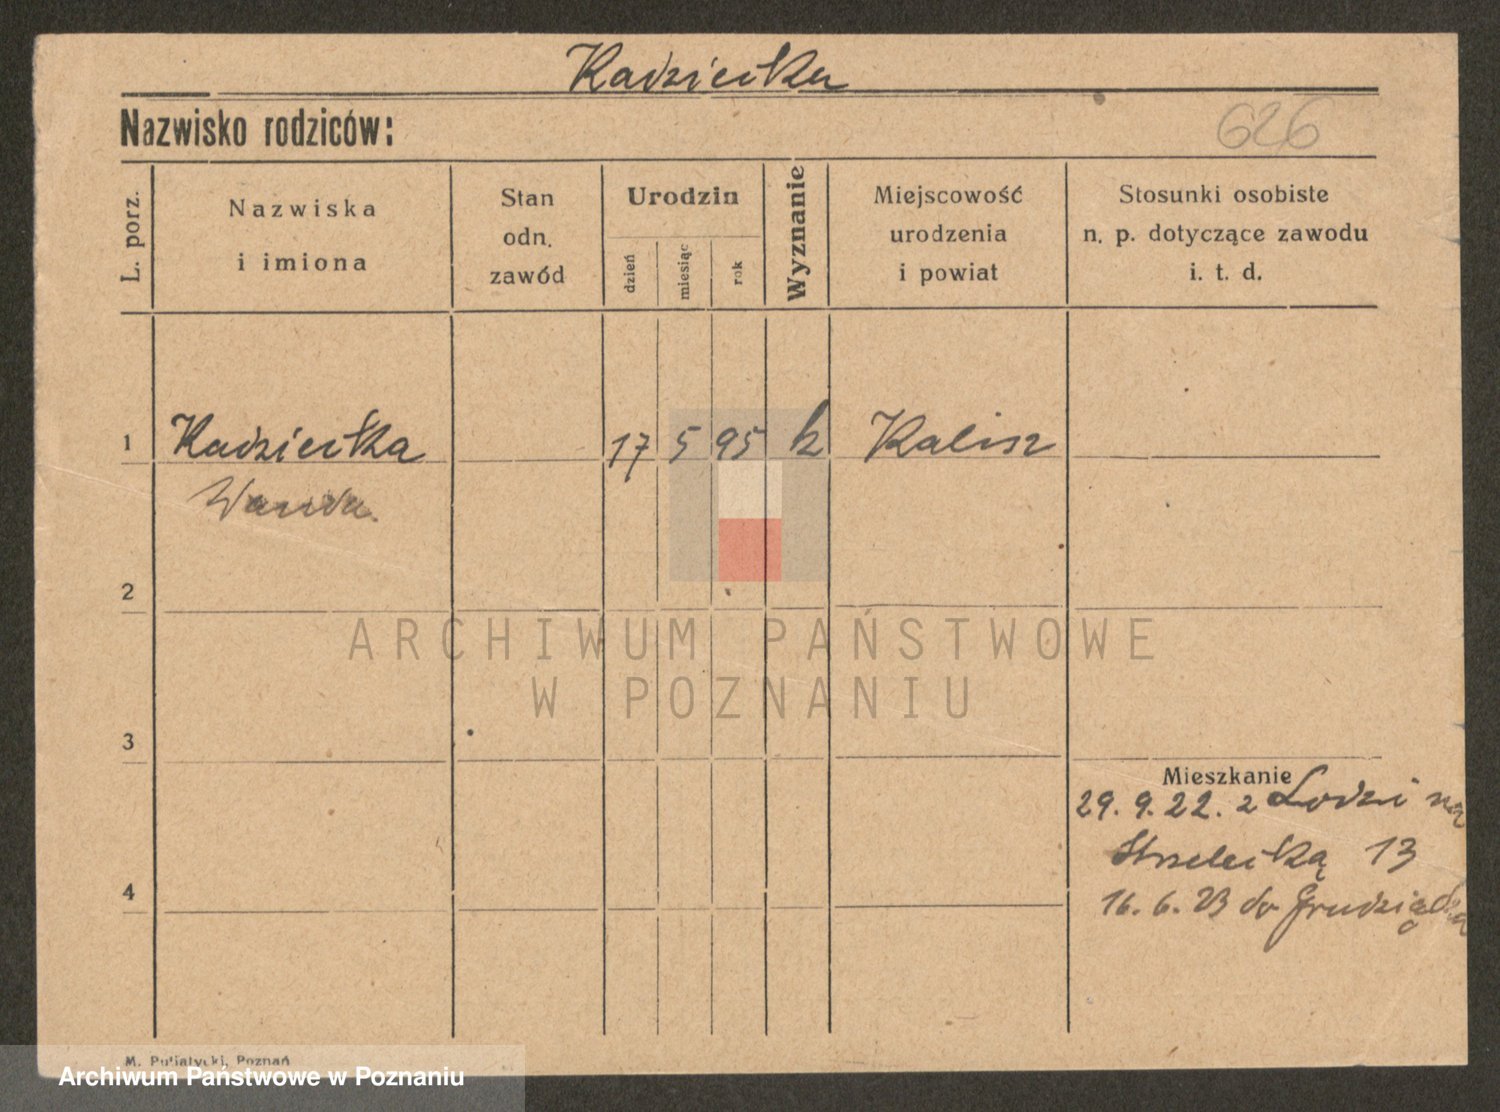 Kadziecka
Nazwisko rodziców:
626
L. porz.
Nazwiska
i imiona
Stan
odn.
zawód
Urodzin
dzień
miesiąc
rok
Wyznanie
Miejscowość
urodzenia
i powiat
Stosunki osobiste
n. p. dotyczące zawodu
i. t. d.
1 Kadziecka 17 5 95 k Kalisz
Wanda
2
ARCHIWUM PAŃSTWOWE
W POZNANIU
3
Mieszkanie
29. 9. 22. z Lodzi na
Strzelecką 13
4
16. 6. 23 do Grudziądza
M. Putiatycki, Poznań
Archiwum Państwowe w Poznaniu